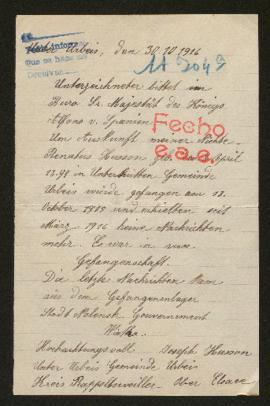 Unter Urbeis, den 30.10 1916
que se hace
11 5049
Unterzeichneter bittet im
Büro Sr. Majestät des Königs
Alfons v. Spanien
Um Auskunft meiner
Fecho
Renatus Husson April
in Unterhütten Gemeinde
c.a.e.
Urbeis wurde gefangen am 12.
Oktober 1915 und erhielten seit
März 1916 keine Nachrichten
mehr. Er war in russ.
Gefangenschaft.
Die letzte Nachrichten kam
aus dem Gefangenenlager
Stadt Gouvernement
Hochachtungsvoll Joseph Husson
Unter Urbeis Gemeinde Urbeis
Kreis Rappoltsweiler Ober Elsass